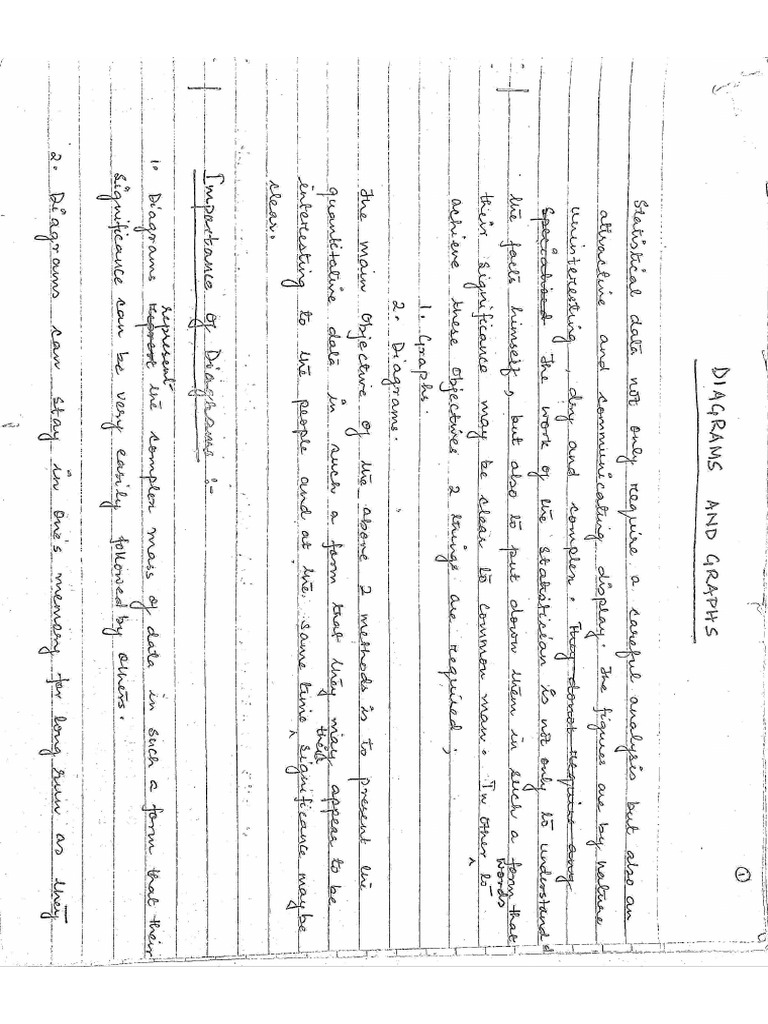 ①
DIAGRAMS AND GRAPHS
Statistical data not only require a careful analysis but also an
attractive and communicating display. The figures are by nature
uninteresting, dry and complex. They donot requires any
specialised The work of the statistician is not only to understand
the facts himself, but also to put down them in such a form that
their significance may be clear to common man. In other words to
achieve these objectives 2 things are required;
1. Graphs.
2. Diagrams.
The main objective of the above 2 methods is to present the
quantitative data in such a form that they may appear to be
interesting to the people and at the same time their significance may be
clear.
Importance of Diagrams :-
1. Diagrams represent the complex mass of data in such a form that their
significance can be very easily followed by others.
2. Diagrams can stay in one's memory for long run as they